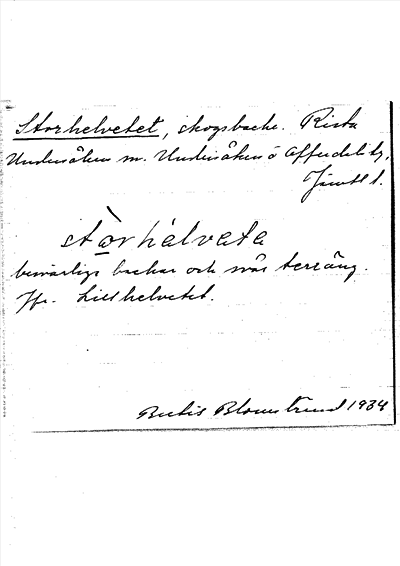 Storhelvetet, skogsbacke. Rista
Undersåkers sn. Undersåkers o Offerdals tg,
Jämtl l.
stòrha̍lveta
besvärliga backar och svår terräng.
Jfr. Lillhelvetet.
Bertis Blomstrand 1934